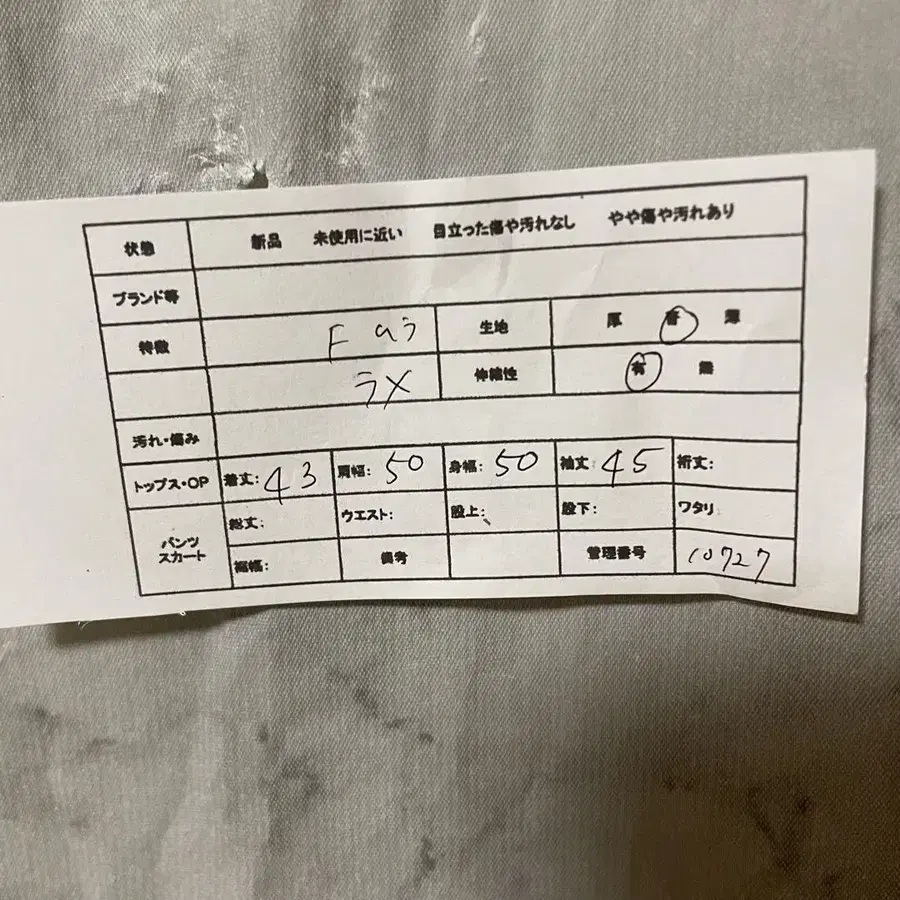 状態 新品 未使用に近い 目立った傷や汚れなし やや傷や汚れあり
ブランド等
特徴 F 生地 厚 普 薄
ラメ 伸縮性 有 無
汚れ・傷み
トップス・OP 着丈: 43 肩幅: 50 身幅: 50 袖丈: 45 裄丈:
パンツ スカート 総丈: ウエスト: 股上: 股下: ワタリ:
裾幅: 備考 管理番号 10727